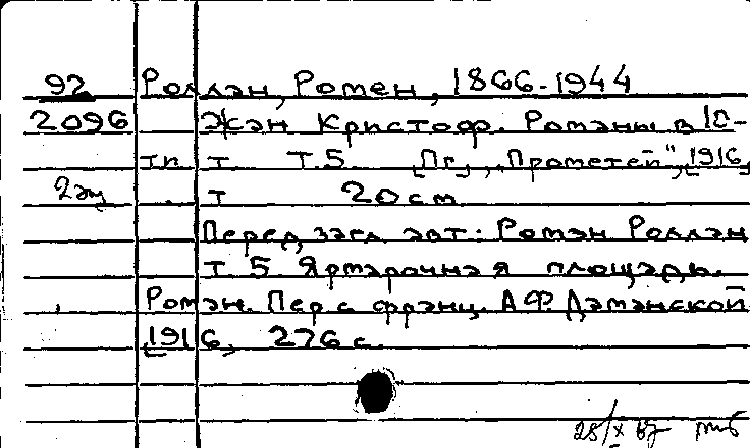 92 Роллан, Ромен, 1866-1944
2096 Жан Кристоф. Романы в 10-
ти т. Т.5. [Пг.], „Прометей", [1916]
2 экз т 20 см.
Перед загл. авт.: Ромэн Роллан
Т. 5. Ярмарочная площадь.
Роман. Пер с франц. А.Ф. Даманской
[1916], 276 с.
28/X